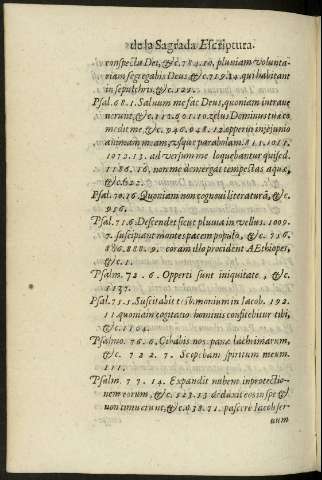 de la Sagrada Escriptura.
conspectu Dei, &c. 784. 10. pluniam volunta-
riam segregabis Deus, &c. 719. 14. qui habitant
in sepulchris, &c. 129.
Psal. 68. 1. Saluum me fac Deus, quoniam intraue
uerunt, &c. 112. 601. 10. zelus Dominus tua co
medit me, &c. 946. 948. 12. opperui in jejunio
animam meam, usque parabulam. 811. 1011.
1072. 13. ad versum me loquebantur qui sed.
1186. 16. non me demergat tempestas aquæ,
&c. 622.
Psal. 70. 16. Quoniam non cognoui literaturã, &c.
956.
Psal. 71. 6. Descendet sicut pluuia in vellus. 1009.
7. suscipiant montes patem populo, &c. 756.
886. 888. 9. coram illo prouident AEthiopes,
&c. 1.
Psalm. 72. 6. Opperti sunt iniquitate, &c.
1137.
Psal. 71. 1. Suscitabit testimonium in Iacob. 192.
11. quoniam cogitatio hominis confitebitur tibi,
&c. 1104.
Psalmo. 76. 6. Cibabis nos pane lachrimarum,
&c. 722. 7. Scopebam spiritum meum.
111.
Psalm. 77. 14. Expandit nubem in protectio-
nem eorum, &c. 523. 13. deduxit eos in spe &
non timuerunt, &c. 938. 71. pascere Iacob ser
uum